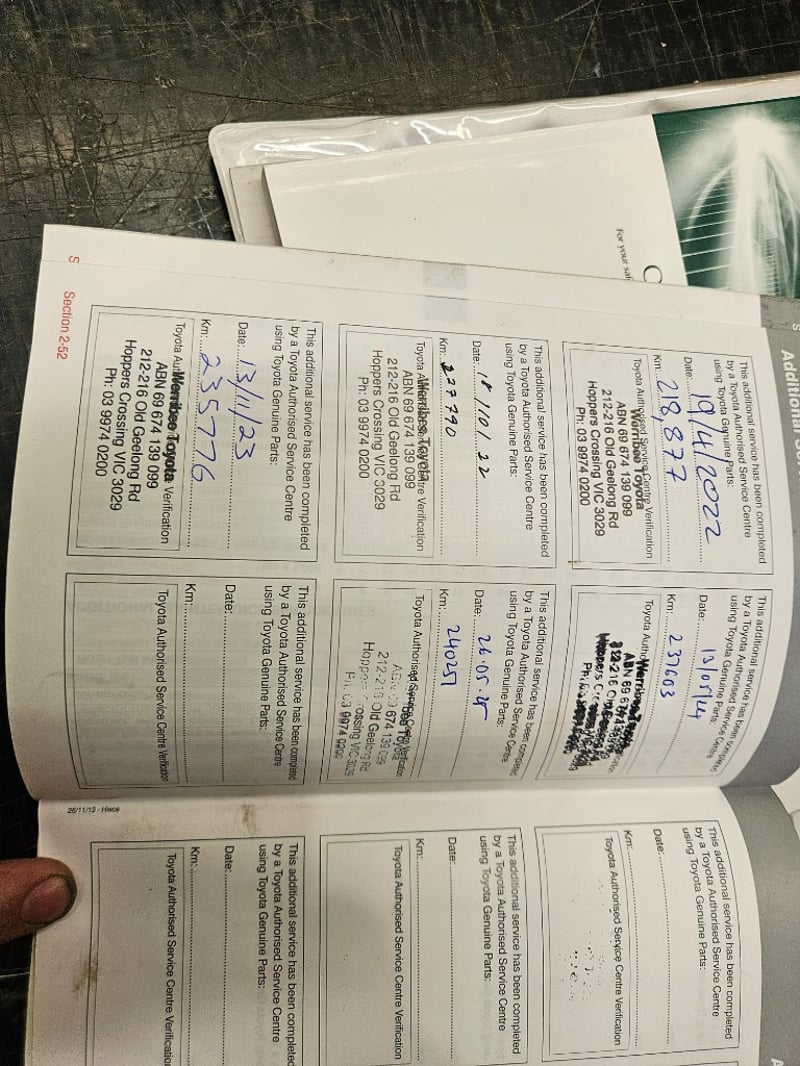 Additional Ser
This additional service has been completed
by a Toyota Authorised Service Centre
using Toyota Genuine Parts:
Date: 19/4/2022
Km: 218,877
Toyota Authorised Service Centre Verification
Werribee Toyota
ABN 69 674 139 099
212-216 Old Geelong Rd
Hoppers Crossing VIC 3029
Ph: 03 9974 0200
This additional service has been completed
by a Toyota Authorised Service Centre
using Toyota Genuine Parts:
Date: 18/10/22
Km: 227790
Toyota Authorised Service Centre Verification
Werribee Toyota
ABN 69 674 139 099
212-216 Old Geelong Rd
Hoppers Crossing VIC 3029
Ph: 03 9974 0200
This additional service has been completed
by a Toyota Authorised Service Centre
using Toyota Genuine Parts:
Date: 13/11/23
Km: 235776
Toyota Verification
Werribee Toyota
ABN 69 674 139 099
212-216 Old Geelong Rd
Hoppers Crossing VIC 3029
Ph: 03 9974 0200
Section 2-52
This additional service has been
by a Toyota Authorised Service Centre
using Toyota Genuine Parts:
Date:
Km: 237603
Werribee
ABN 69
Hoppers
This additional service has been
by a Toyota Authorised Service Centre
using Toyota Genuine Parts:
Date: 26.05.25
Km: 240251
Toyota Authorised Service Centre Verification
674 139 099
212-216 Old Geelong Rd
Hoppers Crossing VIC 3029
Ph: 03 9974 0200
This additional service has been completed
by a Toyota Authorised Service Centre
using Toyota Genuine Parts:
Date:
Km:
Toyota Authorised Service Centre Verification
26/11/13 - Hiace
This additional service has been completed
by a Toyota Authorised Service Centre
using Toyota Genuine Parts:
Date:
Km:
Toyota Authorised Service Centre Verification
This additional service has been completed
by a Toyota Authorised Service Centre
using Toyota Genuine Parts:
Date:
Km:
Toyota Authorised Service Centre Verification
This additional service has been completed
by a Toyota Authorised Service Centre
using Toyota Genuine Parts:
Date:
Km:
Toyota Authorised Service Centre Verification
For your